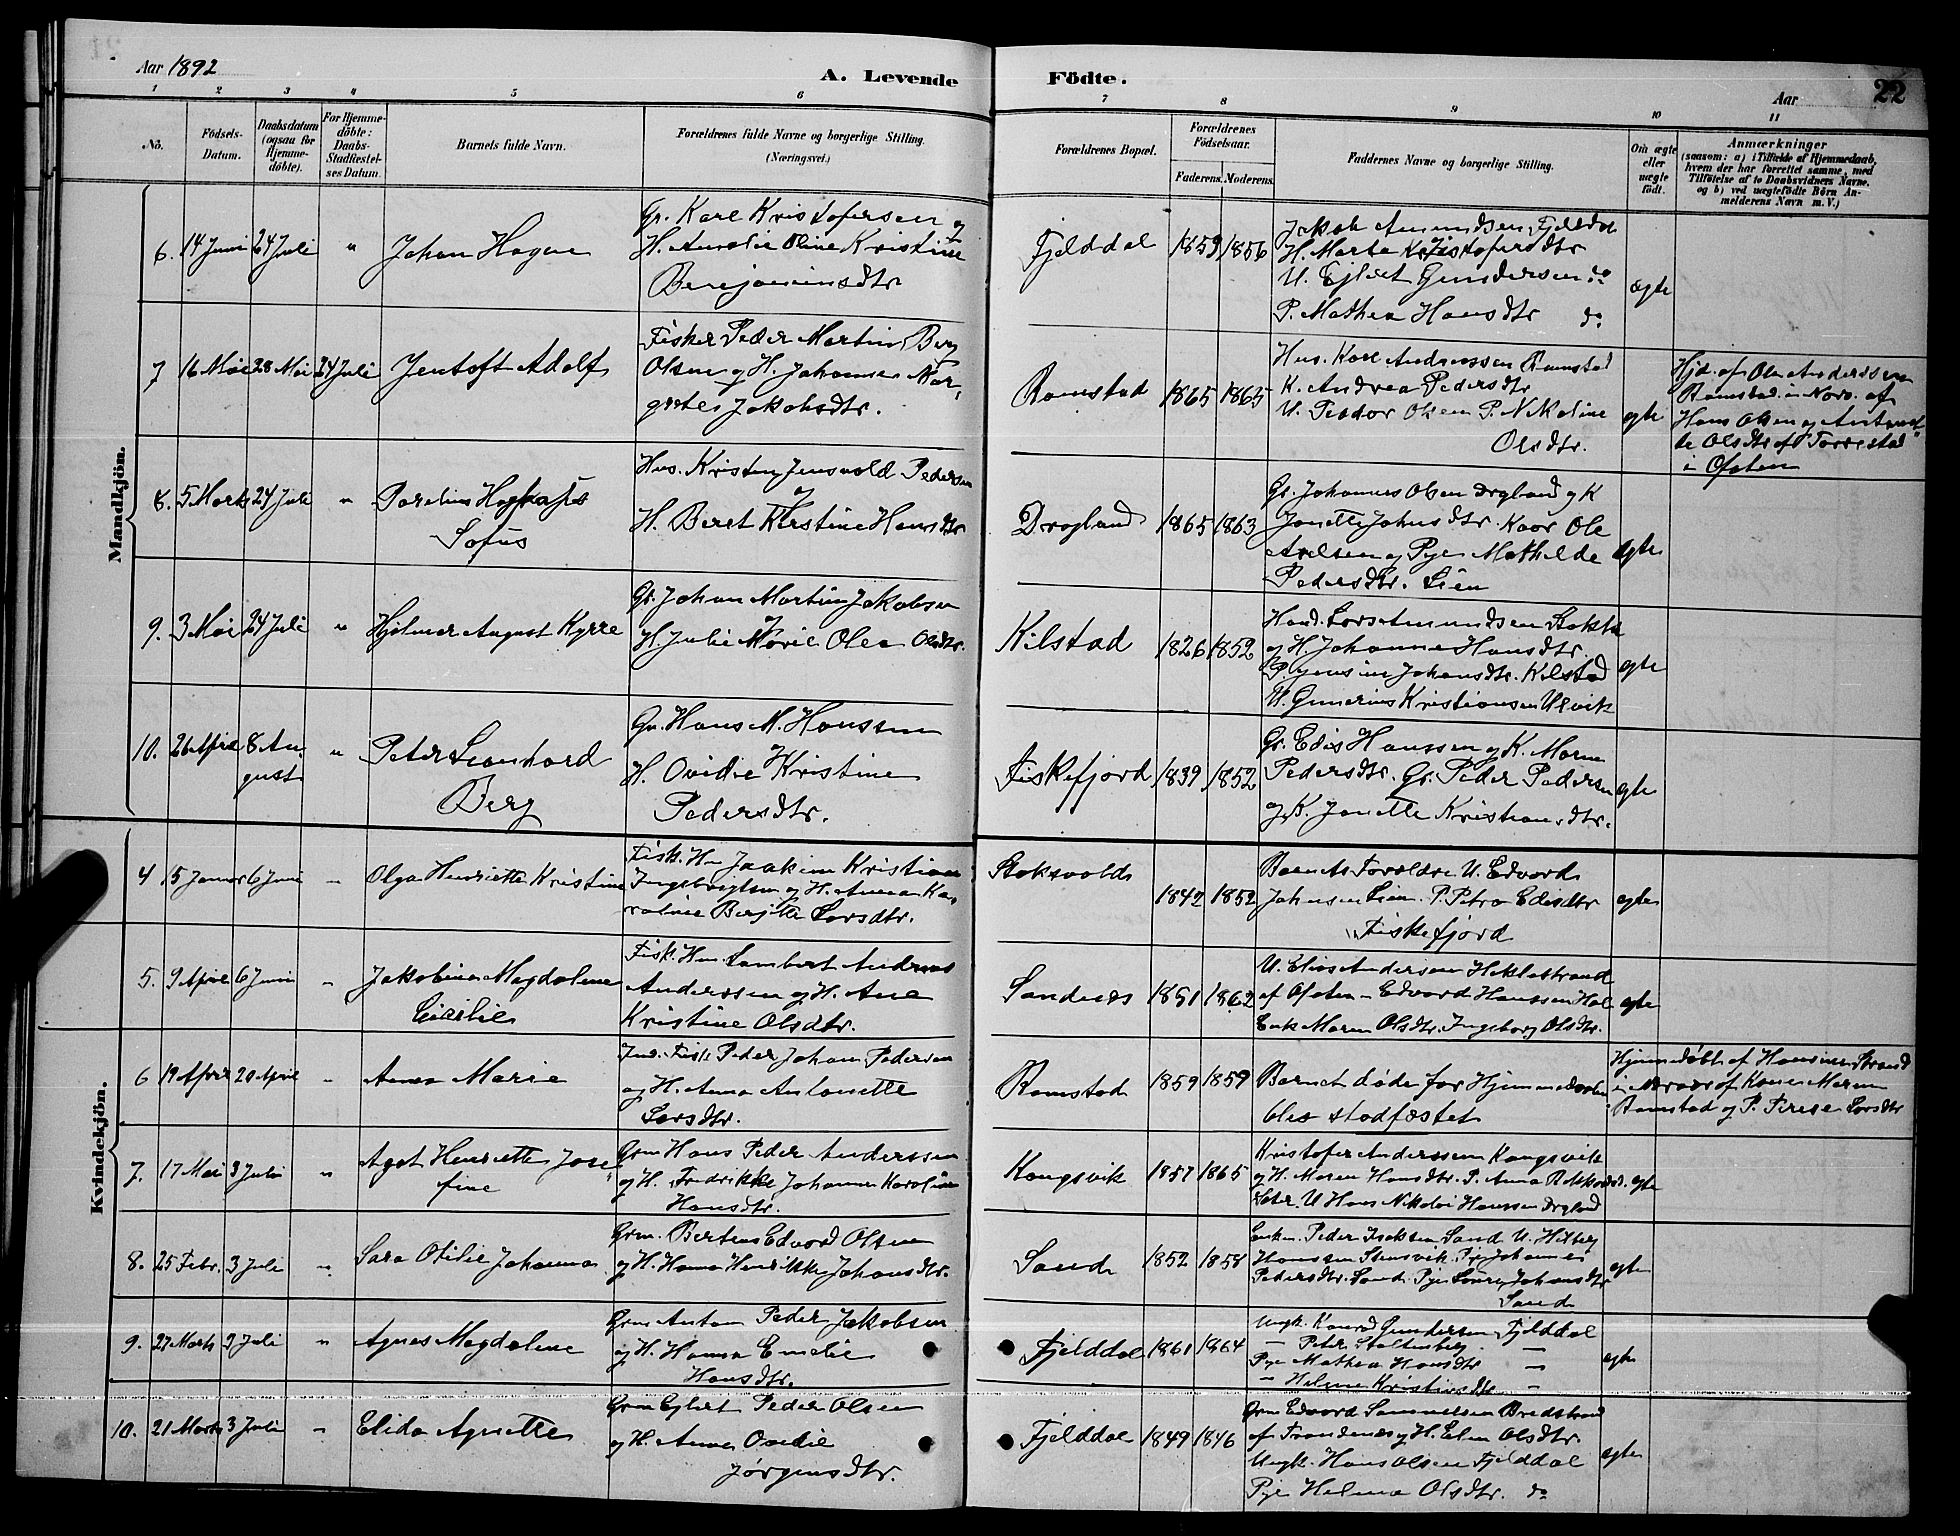 Aar 1892
A. Levende Födte.
Aar 22
1 2 3 4 5 6 7 8 9 10 11
No.
Födsels-Datum.
Daabsdatum (ogsaa for Hjemme-döbte).
For Hjemme-döbte: Daabs-Stadfæstel-ses Datum.
Barnets fulde Navn.
Forældrenes fulde Navne og borgerlige Stilling. (Næringsvei.)
Forældrenes Bopæl.
Forældrenes Födselsaar.
Faderens. Moderens.
Faddernes Navne og borgerlige Stilling.
Om ægte eller uægte födt.
Anmærkninger
(saasom: a) i Tilfælde af Hjemmedaab,
hvem der har forrettet samme, med
Tilföielse af to Daabsvidners Navne,
og b) ved uægtefödte Börn An-
melderens Navn m. V.)
Mandkjön.
6. 14 Juni 24 Juli " Johan Hagen
Gr. Karl Kristofersen og
H. Amalie Oline Kristine
Benjaminsdtr
Fjelddal 1859 1856
Jakob Amundsen Fjelddal
H. Marta Kristofersdtr
U. Ejlert Gundersen do
P. Mathea Hansdtr do
ægte
7 16 Mai 28 Mai 24 Juli Jentoft Adolf
Fisker Peder Martin Berg
Olsen og H. Johanna Mar-
grete Jakobsdtr.
Ramstad 1865 1865
Hus. Karl Andreassen Ramstad
K. Andrea Pedersdtr
U. Peder Olsen P. Nikoline
Olsdtr.
ægte
Hjd. af Ole Anderssen
Ramstad i Nærv. af
Hans Olsen og
Olsdtr af Torrestad
i Ofoten
8. 5 Marts 24 Juli "
Sofus
Hus. Kristen Jensvold Pedersen
og
H. Beret Kirstine Hansdtr
Drogland 1865 1863
Gr. Johannes Olsen Drgland og K
Janette Johnsdtr. Kaar Ole
Axelsen og Pge Mathilde
Pedersdtr. Lien
ægte
9. 3 Mai 24 Juli " Hjalmar August Kyrre
Gr. Johan Martin Jakobsen
og
H. Julie Marie Olea Olsdtr.
Kilstad 1826 1852
Hand. Lars Amundsen
og H. Johanne Hansdtr.
P. Jensine Johansdtr. Kilstad
U. Gunerius Kristiansen Ulvik
ægte
10. 26 April 8 August " Peter Leonhard
Berg
Gr. Hans M. Hanssen
og
H. Ovidie Kristine
Pedersdtr.
Fiskefjord 1839 1852
Gr. Edis Hanssen og K. Maren
Pedersdtr. Gr. Peder Pedersen
og K. Janette Kristiansdtr.
ægte
Kvindekjön.
4 15 Januar 6 Juni " Olga Henriette Kristine
Fisk. Hus Joakim Kristian
Ingebrigtsen og H. Anna Ka-
roline Berjitte Larsdtr.
Stoksvold 1842 1852
Barnets Forældre U. Edvard
Johansen Lien. P. Petra Edisdtr
Fiskefjord
ægte
5. 9 April 6 Juni " Jakobine Magdalene
Cicilie
Fisk. Hus. Lambert Andreas
Anderssen og H. Ane
Kristine Olsdtr.
Sandnes 1851 1862
U. Elias Andersen Heklestrand
af Ofoten – Edvard Hanssen Hol
Enke Maren Olsdtr. Ingeborg Olsdtr.
ægte
6 19 April 20 April " Anna Marie
Ind. Fisk Peder Johan Pedersen
og H. Anna Antonette
Larsdtr.
Ramstad 1859 1859
Barnet døde før Hjemmedaaben
blev stadfæstet
Hjemmedøbt af Strand
i Nærvær af Konen Maren
Ramstad og P. Larsdtr
7. 17 Mai 3 Julii " Agot Henriette Jose-
fine
Grm Hans Peder Anderssen
og H. Fredrikke Johanna Karoline
Hansdtr.
Kongsvik 1857 1865
Kristofer Anderssen Kongsvik
og H. Maren Hansdtr. P. Anna
U Hans Nikolai Hanssen Drgland
ægte
8. 25 Febr. 3 Juli " Sara Otilie Johanna
Grm. Berteus Edvard Olsen
og H. Hanna Henrikke Johansdtr.
Sand 1852 1858
Enkm. Peder Isaksen Sand
Hanssen Stensvik. Pige Johanna
Pedersdtr. Sand. Pge Johansdtr
Sand
ægte
9. 27 Marts 3 Juli " Agnes Magdalene
Grm Anton Peder Jakobsen
og H. Hanna Emelie
Hansdtr.
Fjelddal 1861 1864
Ungk. Konrad Gundersen Fjelddal
– Peter Stoltenberg –
Pge Mathea Hansdtr –
– Helene Kristinsdtr –
ægte
10. 21 Marts 3 Juli " Elida Agnette
Grm Eglert Peder Olsen
og H. Anna Ovedie
Jørgensdtr.
Fjelddal 1849 1846
Grm Edvard Samuelsen Bredstrand
af Trondenæs og H. Elen Olsdtr.
Ungk. Hans Olsen Fjelddal
Pge Helena Olsdtr. do
ægte